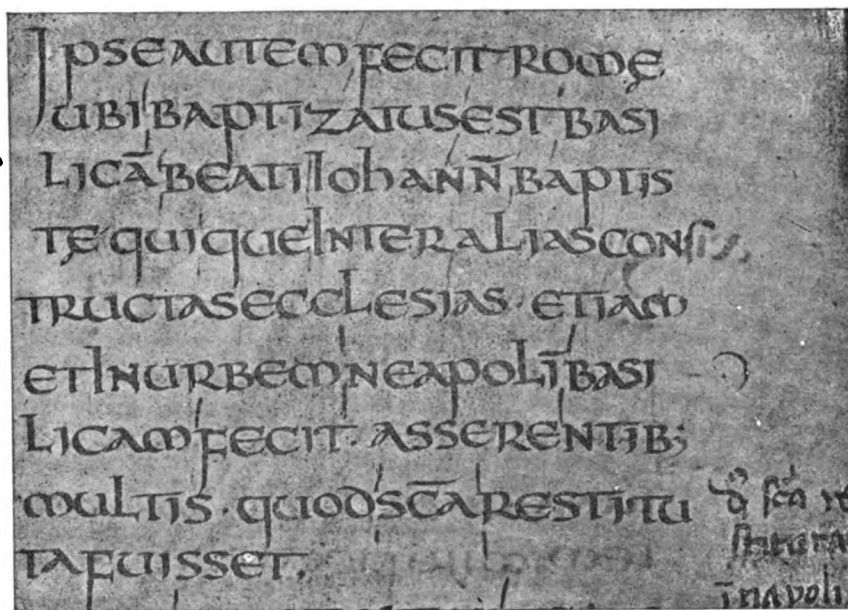 IPSEAUTEMFECITROMĘ
UBIBAPTIZATUSESTBASI
LICĀBEATIIOHANN̄BAPTIS
TĘQUIQUEINTERALIASCONS
TRUCTASECCLESIAS·ETIAM
ETINURBEMNEAPOLĪBASI
LICAMFECIT·ASSERENTIB;
MULTIS·QUODSC̄ARESTITU
TAFUISSET.
sc̄a re
stituta
ī napoli